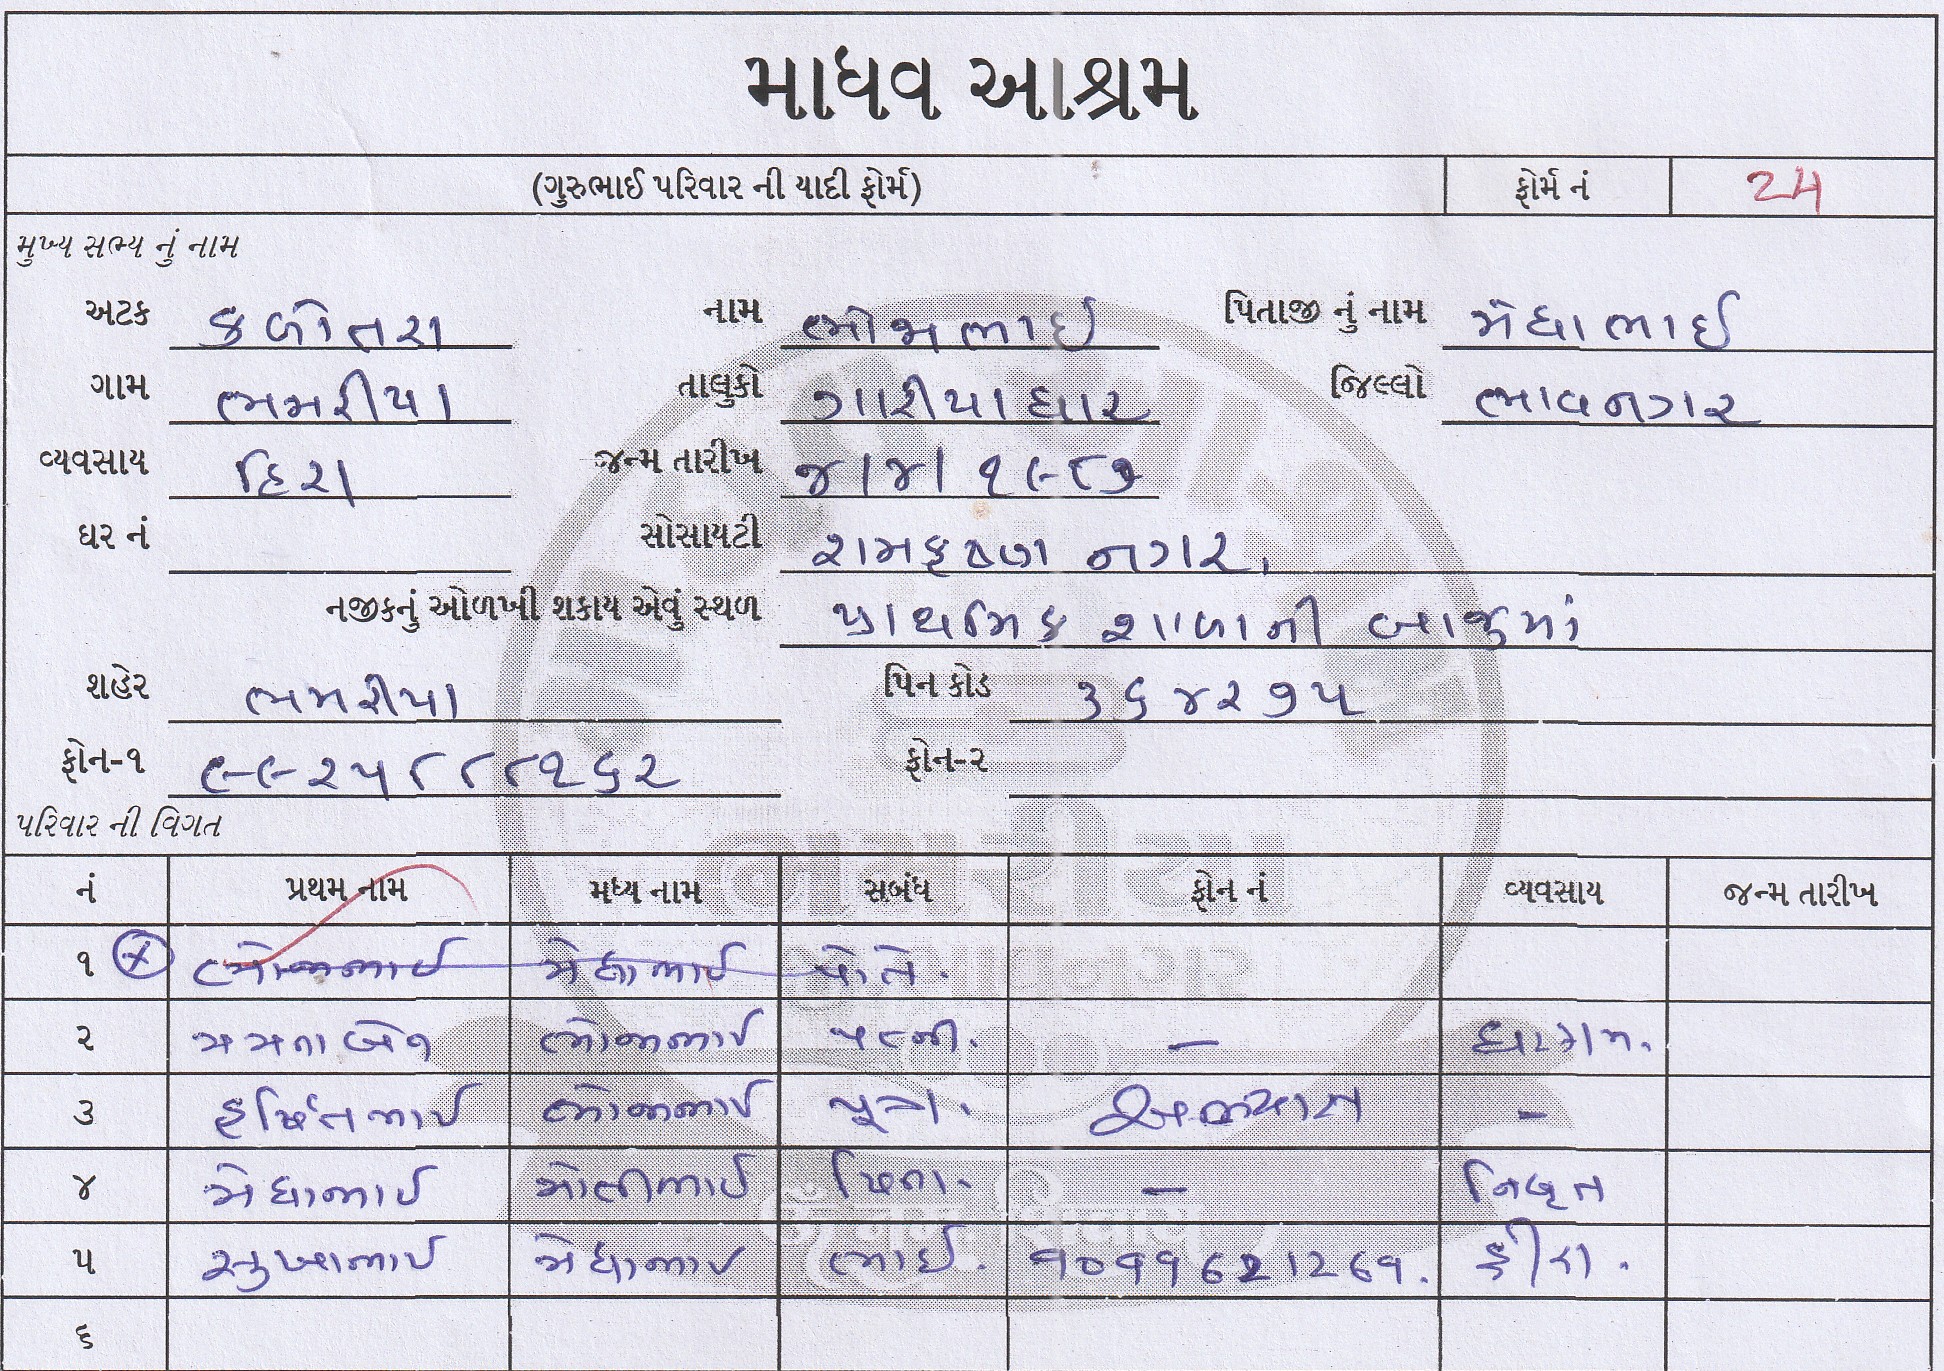 માધવ આશ્રમ
(ગુરુભાઈ પરિવાર ની યાદી ફોર્મ) ફોર્મ નં 24
મુખ્ય સભ્ય નું નામ
અટક કળોતરા નામ ભોજાભાઈ પિતાજી નું નામ મેઘાભાઈ
ગામ ભમરીયા તાલુકો ગારીયાધાર જિલ્લો ભાવનગર
વ્યવસાય હિરા જન્મ તારીખ ૪/૪/૧૯૮૭
ઘર નં સોસાયટી રામકૃષ્ણ નગર.
નજીકનું ઓળખી શકાય એવું સ્થળ પ્રાથમિક શાળાની બાજુમાં
શહેર ભમરીયા પિન કોડ ૩૬૪૨૭૫
ફોન-૧ ૯૯૨૫૮૮૮૧૬૨ ફોન-૨
પરિવાર ની વિગત
નં પ્રથમ નામ મધ્ય નામ સબંધ ફોન નં વ્યવસાય જન્મ તારીખ
૧ ભોજાભાઈ મેઘાભાઈ પોતે.
૨ મમતાબેન ભોજાભાઈ પત્ની. –
૩ હર્ષિતભાઈ ભોજાભાઈ પુત્ર. અભ્યાસ –
૪ મેઘાભાઈ મોતીભાઈ પિતા. – નિવૃત
૫ સુખાભાઈ મેઘાભાઈ ભાઈ. હીરા.
૬